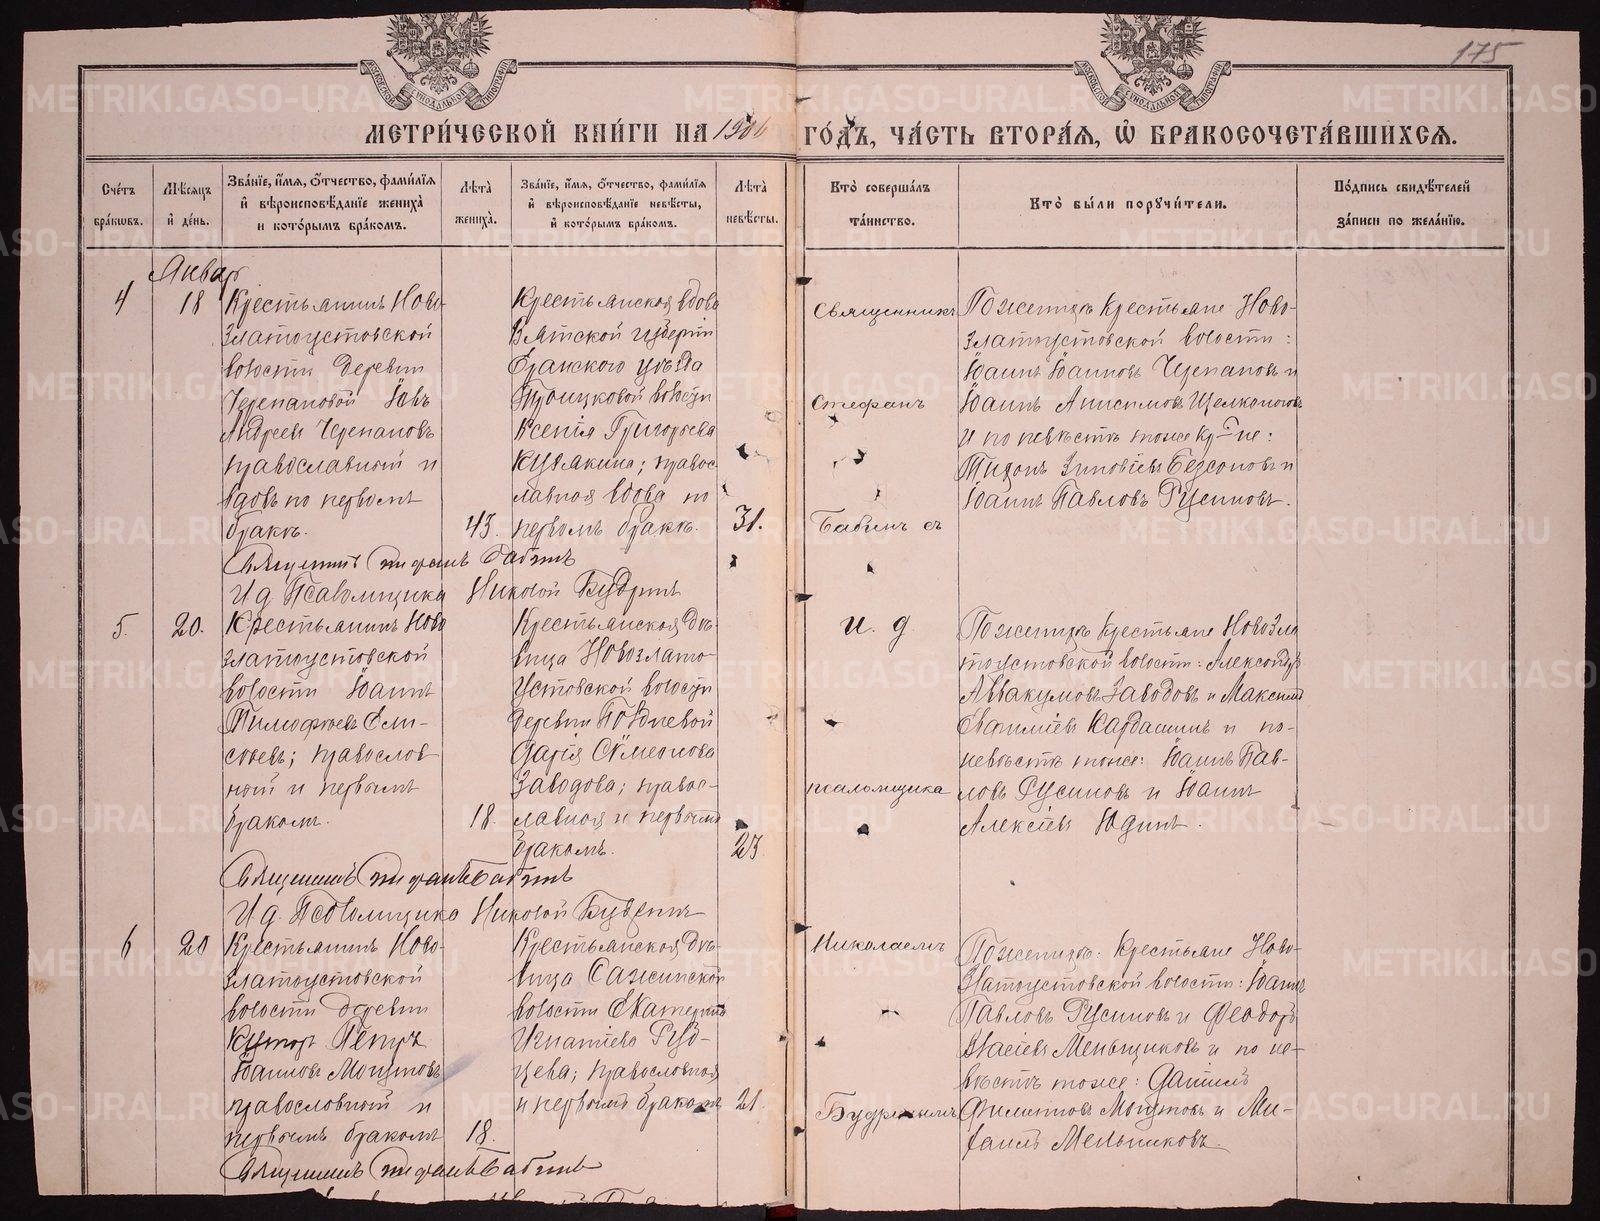 175
МЕТРИ́ЧЕСКОЙ КНИ́ГИ НА 1906 ГО́ДЪ, ЧА́СТЬ ВТОРА́Я, Ѽ БРАКОСОЧЕТА́ВШИХСЯ.
Сче́тъ бра́ковъ.
Мѣ́сяцъ и҆ де́нь.
Зва́нїе, и҆́мя, ѻ҆́тчество, фами́лїя и҆ вѣроисповѣ́данїе жениха̀ и кото́рымъ бра́комъ.
Лѣ́та жениха̀.
Зва́нїе, и҆́мя, ѻ҆́тчество, фами́лїя и҆ вѣроисповѣ́данїе невѣ́сты, и҆ кото́рымъ бра́комъ.
Лѣ́та невѣ́сты.
Кто̀ соверша́лъ та́инство.
Кто̀ бы́ли порꙋчи́тели.
По́дпись свидѣ́телей за́писи по жела́нїю.
Январь
4
18
Крестьянинъ Ново-
златоустовской
волости деревни
Черепановой Іовъ
Андреевъ Черепановъ
православный и
вдовъ по первомъ
бракѣ.
43.
Крестьянская вдова
Вятской губерніи
Яранскаго уѣзда
Троицковой волости
Ксенія Григорьева
православ-
лавная вдова по
первомъ бракѣ.
31.
Священникъ
Стефанъ
Бабинъ съ
По женихѣ крестьяне Ново-
златоустовской волости:
Іоаннъ Іоанновъ Черепановъ и
Іоаннъ Анисимовъ Щелконоговъ
и по невѣстѣ тоже кр-не:
Тихонъ Зиновіевъ Безсоновъ и
Іоаннъ Павловъ Русиновъ.
Священникъ Стефанъ Бабинъ
И д Псаломщика Николай Будринъ
5.
20.
Крестьянинъ Ново
златоустовской
волости Іоаннъ
Тимофеевъ Ели-
сѣевъ; православ
ный и первымъ
бракомъ.
18.
Крестьянская дѣ-
вица Новозлато-
устовской волости
деревни
Дарія Сѵмеонова
Заводова; правос-
лавная и первымъ
бракомъ.
23
и. д.
псаломщика
По женихѣ крестьяне Новозла
тоустовской волости: Александръ
Аввакумовъ Заводовъ и Максимъ
Евфиміевъ Кардашинъ и по-
невѣстѣ тоже: Іоаннъ Пав-
ловъ Русиновъ и Іоаннъ
Алексіевъ Юдинъ.
Священникъ Стефанъ Бабинъ
И д. Псаломщика Николай Будринъ
6
20
Крестьянинъ Ново-
златоустовской
волости деревни
Петръ
Іоанновъ
православный и
первымъ бракомъ
18.
Крестьянская дѣ-
вица Сажинской
волости Екатерина
Игнатіева Руд-
цева; православная
и первымъ бракомъ
21.
Николаемъ
Будринымъ
По женихѣ: крестьяне Ново-
златоустовской волости: Іоаннъ
Павловъ Русиновъ и Феодоръ
Меньщиковъ и по не-
вѣстѣ тоже: Даніилъ
Филипповъ и Ми-
хаилъ Мельниковъ.
Священникъ Стефанъ Бабинъ
METRIKI.GASO-URAL.RU